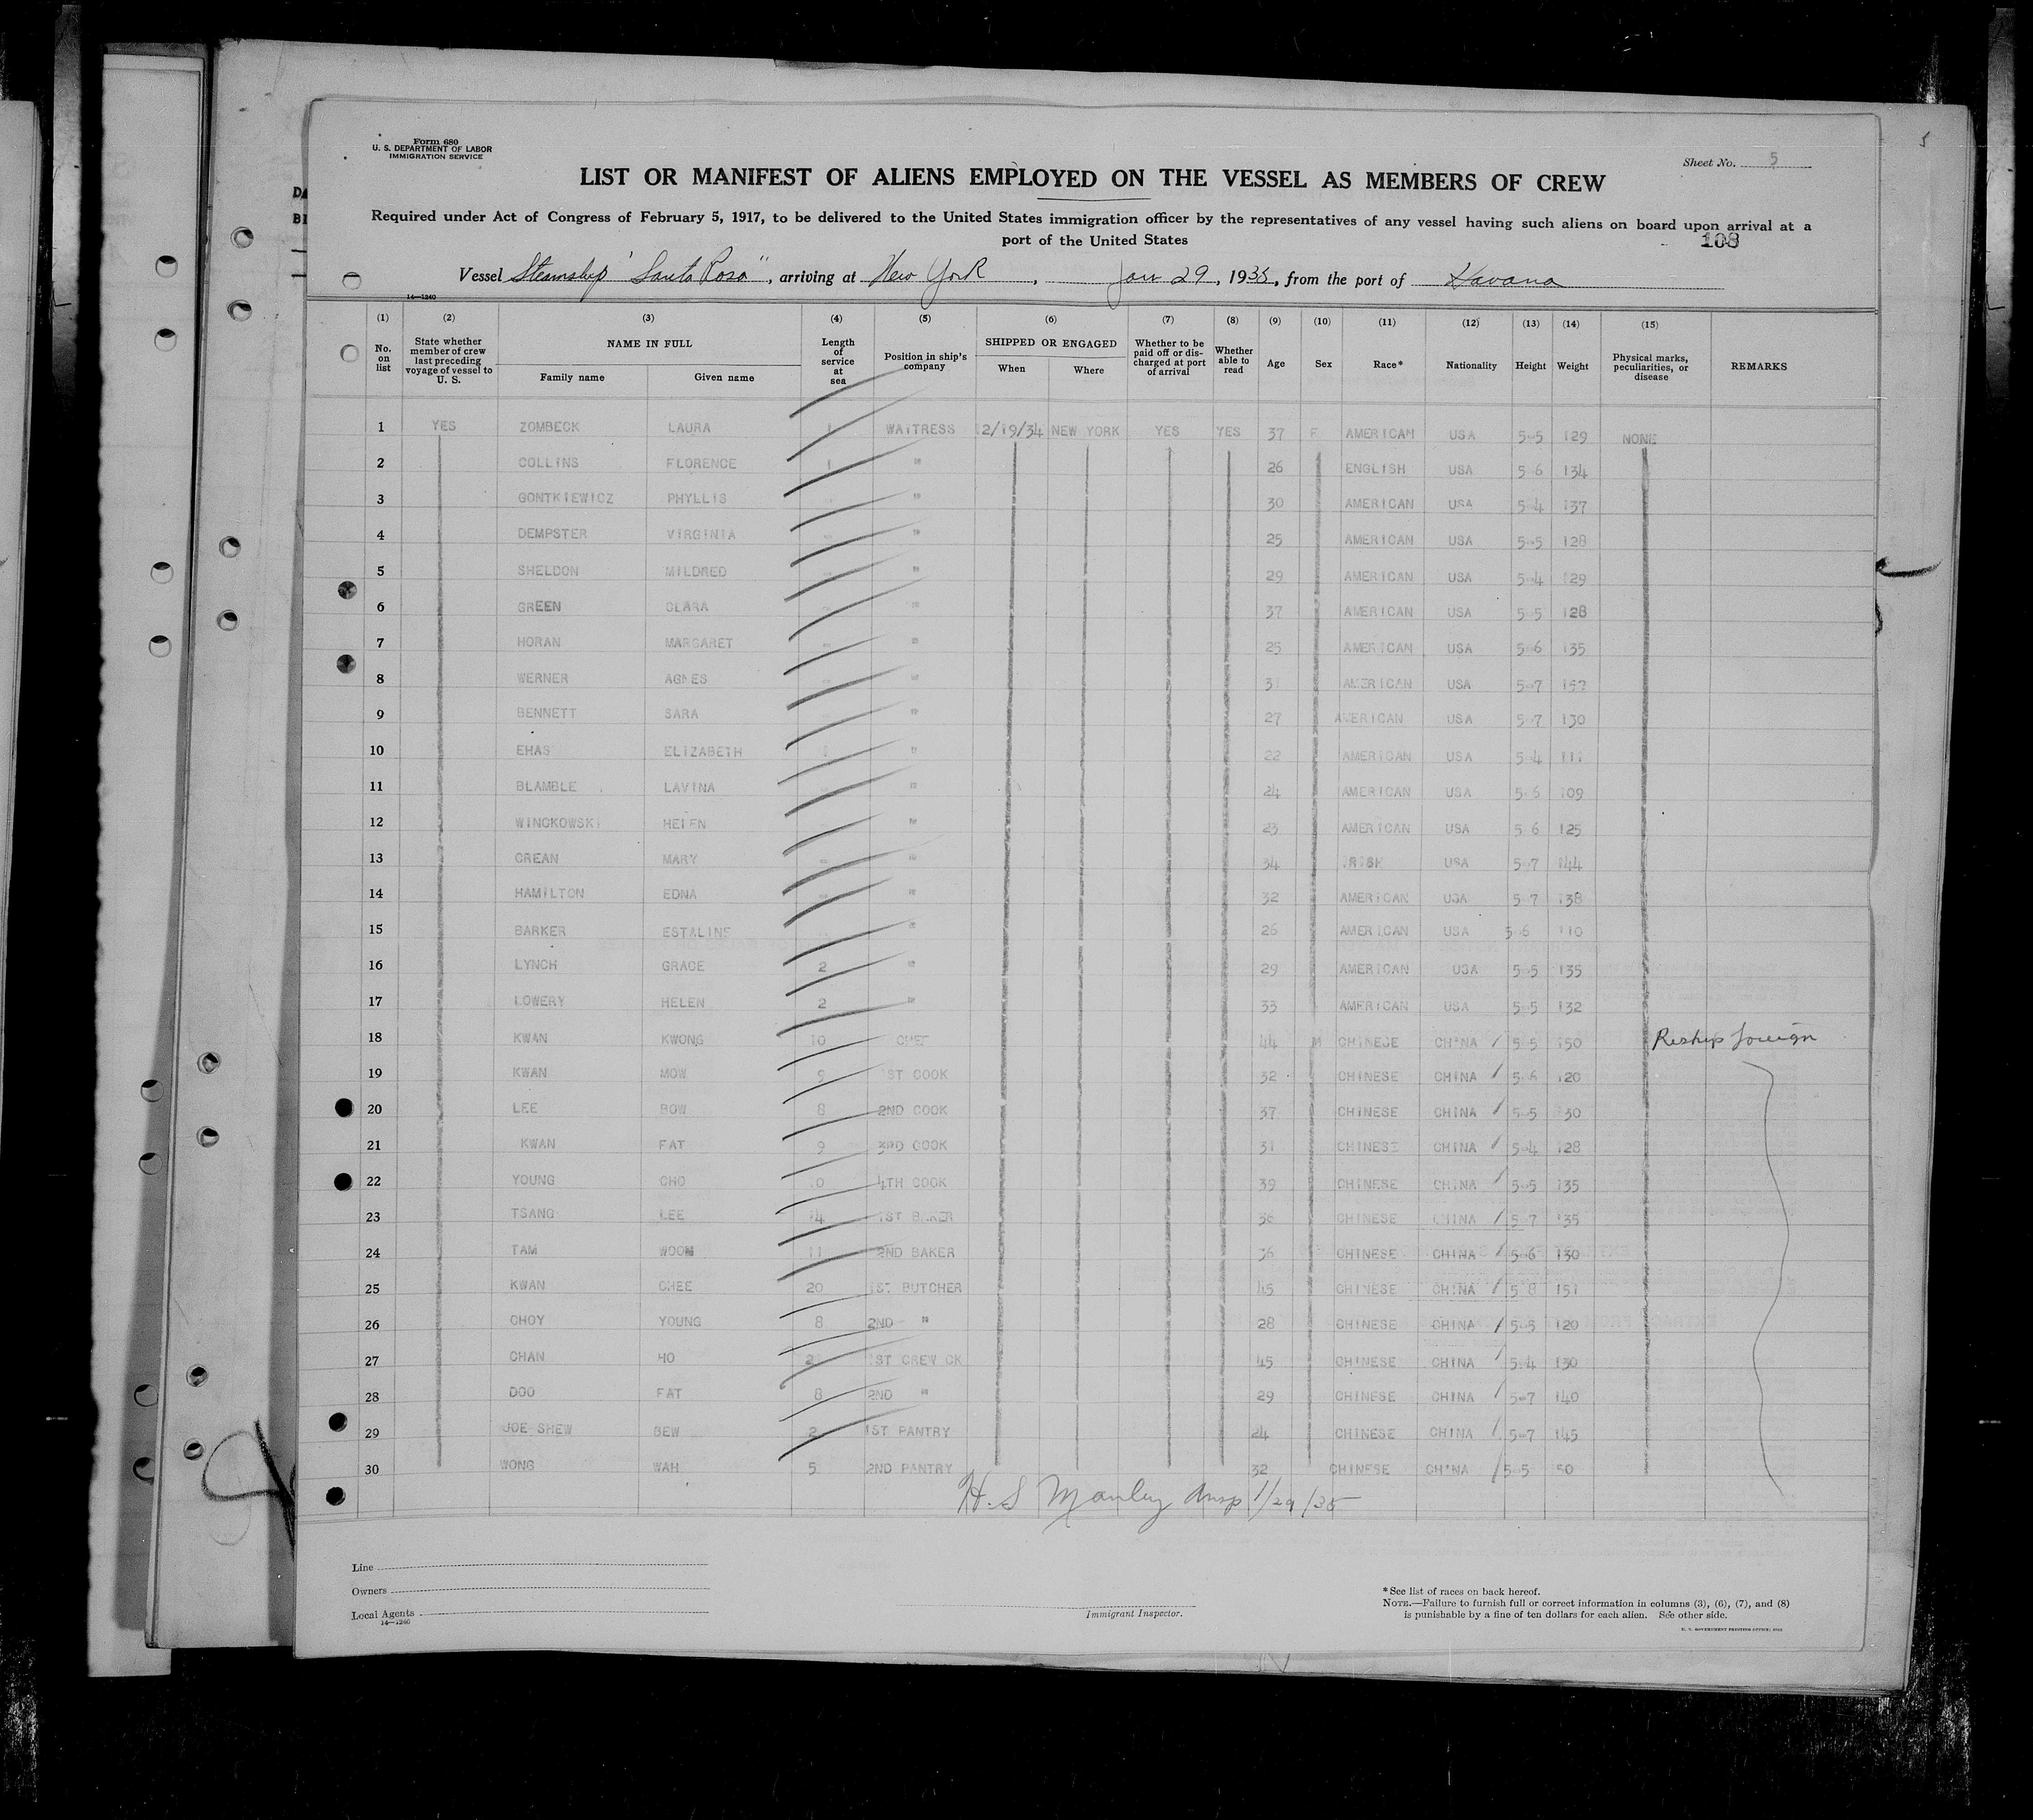 Form 680
U. S. DEPARTMENT OF LABOR
IMMIGRATION SERVICE
Sheet No. 5
LIST OR MANIFEST OF ALIENS EMPLOYED ON THE VESSEL AS MEMBERS OF CREW
Required under Act of Congress of February 5, 1917, to be delivered to the United States immigration officer by the representatives of any vessel having such aliens on board upon arrival at a
port of the United States
108
Vessel Steamship "Santa Rosa", arriving at New York, Jan 29, 1935, from the port of Havana
14—1240
(1) (2) (3) (4) (5) (6) (7) (8) (9) (10) (11) (12) (13) (14) (15)
No. on list State whether member of crew last preceding voyage of vessel to U. S. NAME IN FULL Family name Given name Length of service at sea Position in ship's company SHIPPED OR ENGAGED When Where Whether to be paid off or discharged at port of arrival Whether able to read Age Sex Race* Nationality Height Weight Physical marks, peculiarities, or disease REMARKS
1 YES ZOMBECK LAURA WAITRESS 12/19/34 NEW YORK YES YES 37 F AMERICAN USA 5-5 129 NONE
2 COLLINS FLORENCE " 26 ENGLISH USA 5-6 134
3 GONTKIEWICZ PHYLLIS " 30 AMERICAN USA 5-4 137
4 DEMPSTER VIRGINIA " 25 AMERICAN USA 5-5 128
5 SHELDON MILDRED " 29 AMERICAN USA 5-4 129
6 GREEN CLARA " 37 AMERICAN USA 5-5 128
7 HORAN MARGARET " 25 AMERICAN USA 5-6 135
8 WERNER AGNES " 31 AMERICAN USA 5-7
9 BENNETT SARA " 27 AMERICAN USA 5-7 130
10 EHAS ELIZABETH " 22 AMERICAN USA 5-4 111
11 BLAMBLE LAVINA " 24 AMERICAN USA 5-6 109
12 WINCKOWSKI HELEN " 23 AMERICAN USA 5 6 125
13 CREAN MARY " 34 IRISH USA 5-7 144
14 HAMILTON EDNA " 32 AMERICAN USA 5-7 138
15 BARKER ESTALINE " 26 AMERICAN USA 5-6 110
16 LYNCH GRACE 2 " 29 AMERICAN USA 5-5 135
17 LOWERY HELEN 2 " 33 AMERICAN USA 5-5 132
18 KWAN KWONG 10 CHEF 44 M CHINESE CHINA 5-5 150 Reship foreign
19 KWAN MOW 9 1ST COOK 32 CHINESE CHINA 5-6 120
20 LEE BOW 8 2ND COOK 37 CHINESE CHINA 5-5 130
21 KWAN FAT 9 3RD COOK 31 CHINESE CHINA 5-4 128
22 YOUNG CHO 10 4TH COOK 39 CHINESE CHINA 5-5 135
23 TSANG LEE 14 1ST BAKER CHINESE CHINA 5-7 135
24 TAM WOON 11 2ND BAKER 36 CHINESE CHINA 5-6 130
25 KWAN CHEE 20 1ST BUTCHER 45 CHINESE CHINA 5 8 151
26 CHOY YOUNG 8 2ND " 28 CHINESE CHINA 5-5 120
27 CHAN HO 1ST CREW CK 45 CHINESE CHINA 5-4 130
28 DOO FAT 8 2ND " 29 CHINESE CHINA 5-7 140
29 JOE SHEW BEW 2 1ST PANTRY 24 CHINESE CHINA 5-7 145
30 WONG WAH 5 2ND PANTRY 32 CHINESE CHINA 5-5
H. S Manley Insp 1/29/35
Line
Owners
Local Agents
14—1240
Immigrant Inspector.
* See list of races on back hereof.
NOTE.—Failure to furnish full or correct information in columns (3), (6), (7), and (8)
is punishable by a fine of ten dollars for each alien. See other side.